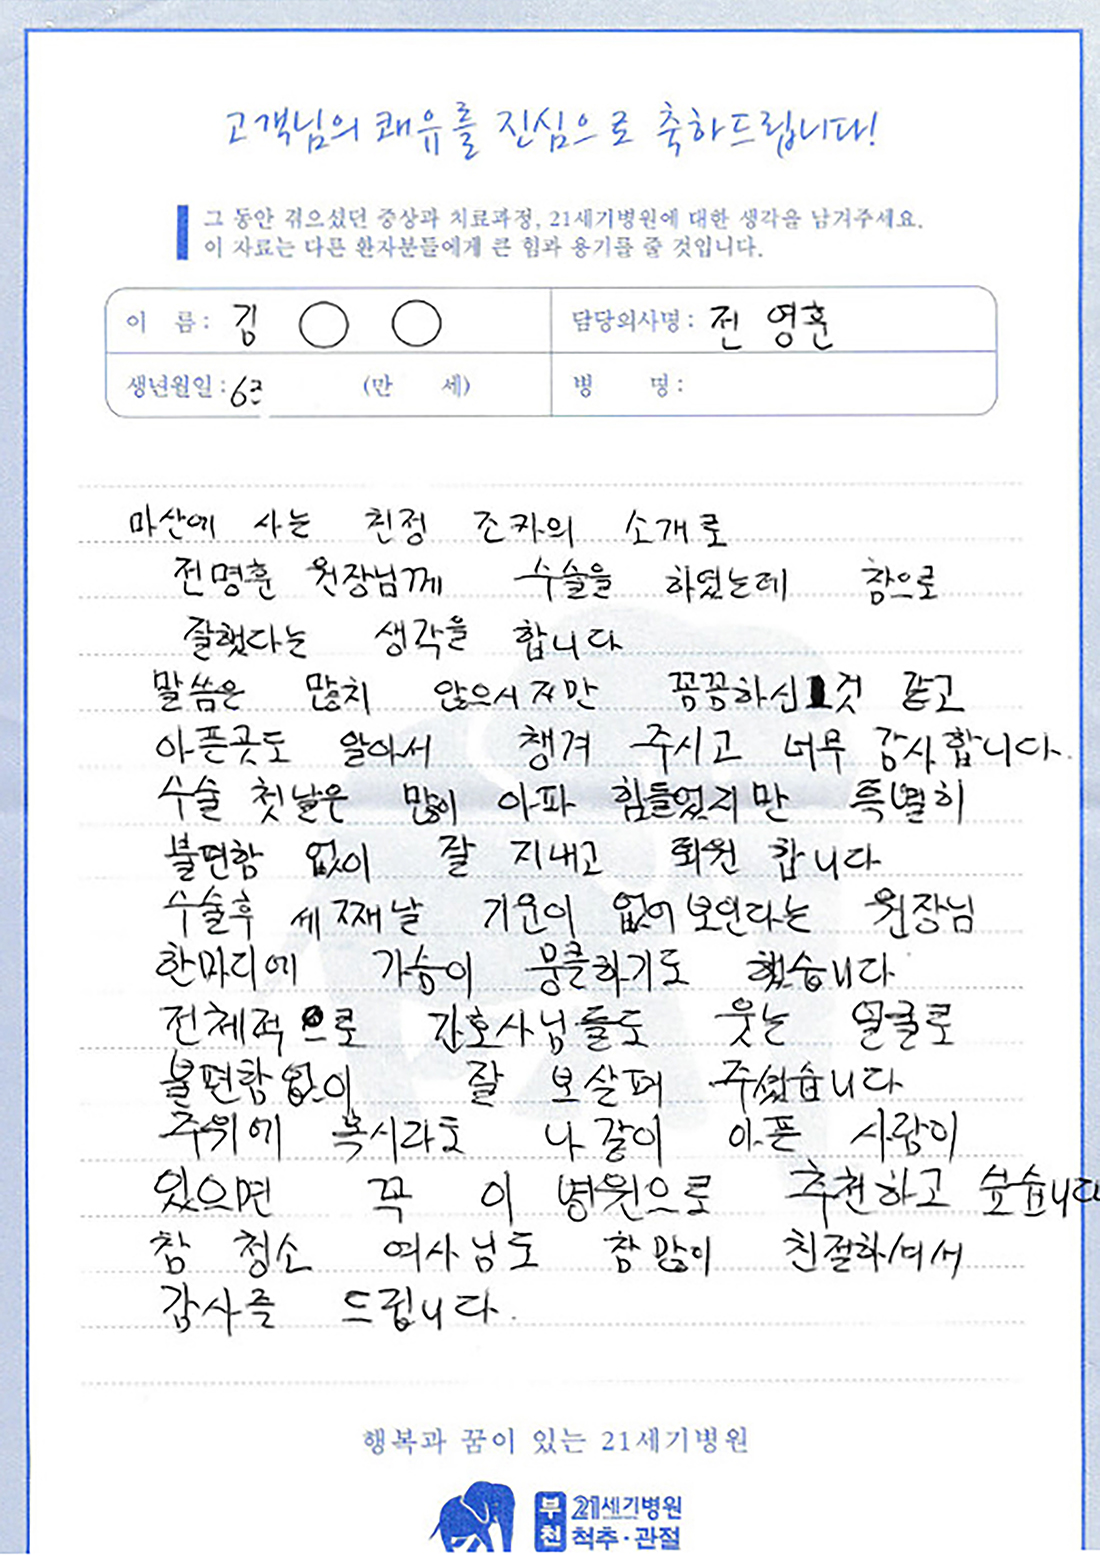 고객님의 쾌유를 진심으로 축하드립니다!
그 동안 겪으셨던 증상과 치료과정, 21세기병원에 대한 생각을 남겨주세요.
이 자료는 다른 환자분들에게 큰 힘과 용기를 줄 것입니다.
이 름 : 김 ○ ○ 담당의사명 : 전 영훈
생년월일 : 63 (만 세) 병 명 :
마산에 사는 친정 조카의 소개로
전명훈 원장님께 수술을 하였는데 참으로
잘했다는 생각을 합니다
말씀은 많치 않으시지만 꼼꼼하신 것 같고
아픈곳도 알아서 챙겨 주시고 너무 감사합니다.
수술 첫날은 많이 아파 힘들었지만 특별히
불편함 없이 잘 지내고 퇴원 합니다
수술후 세째날 기운이 없어보인다는 원장님
한마디에 가슴이 뭉클하기도 했습니다
전체적으로 간호사님들도 웃는 얼굴로
불편함없이 잘 보살펴 주셨습니다
주위에 혹시라도 나같이 아픈 사람이
있으면 꼭 이 병원으로 추천하고 싶습니다
참 청소 여사님도 참 많이 친절하셔서
감사를 드립니다.
행복과 꿈이 있는 21세기병원
부천 21세기병원
척추·관절